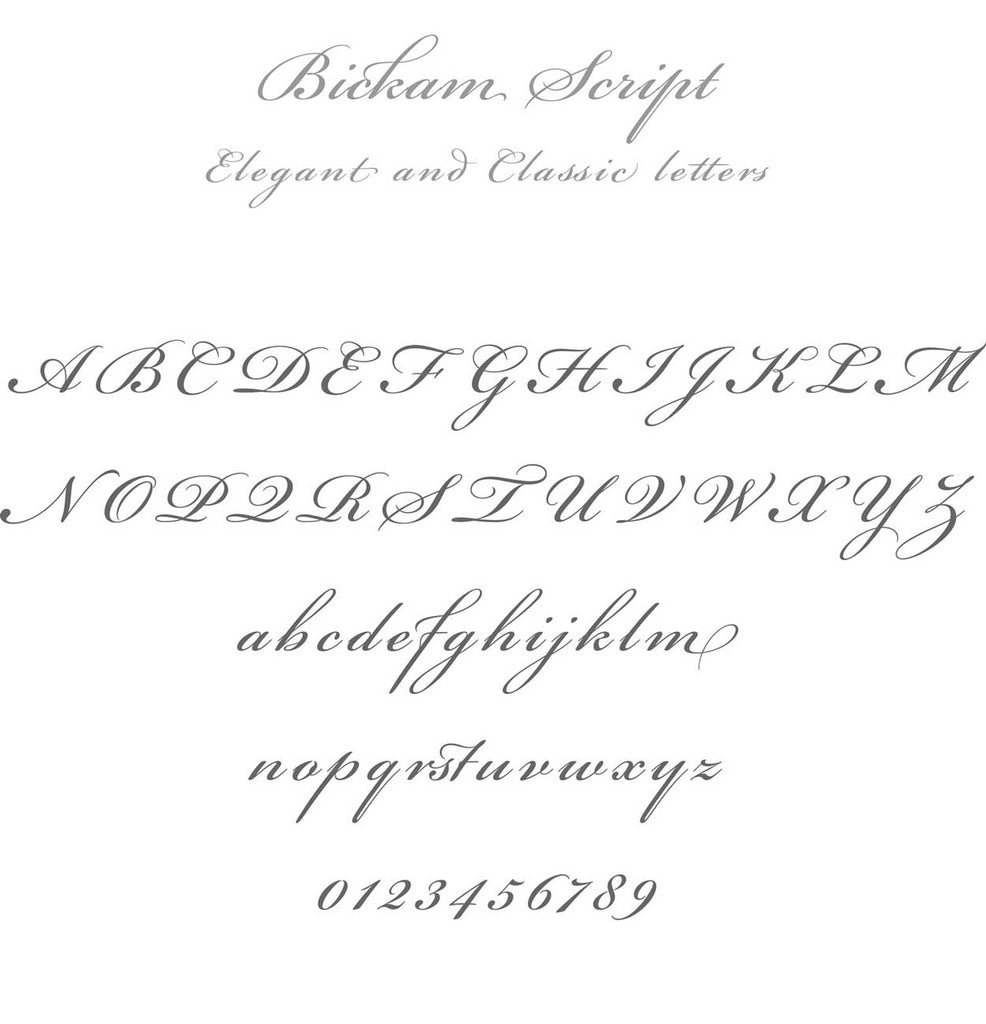 Bickam Script
Elegant and Classic letters
ABCDEFGHIJKLM
NOPQRSTUVWXYZ
abcdefghijklm
nopqrstuvwxyz
0123456789